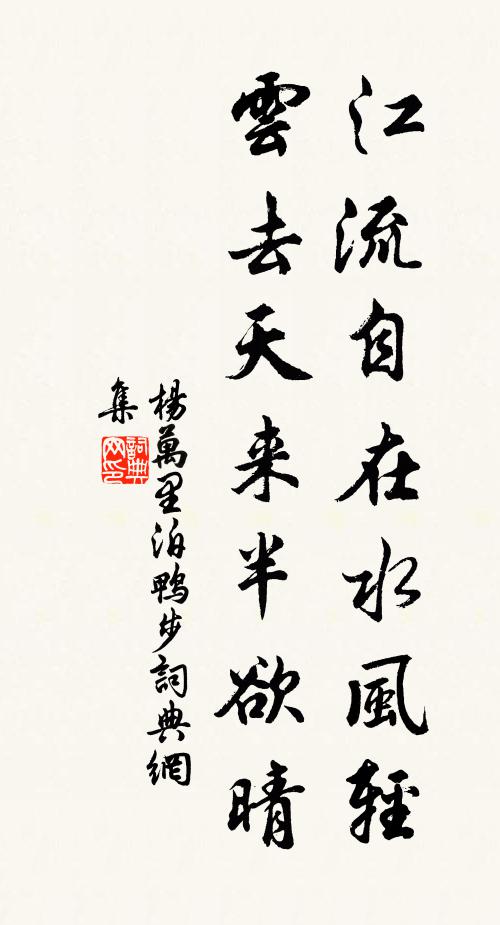 江流自在水風輕
雲去天来半欲晴
楊萬里泊鴨步詞典網
集
詞典
网印